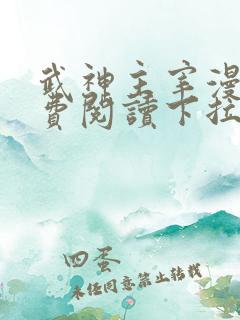 武神主宰漫
費閱讀下拉
四蛋
未经同意禁止转载